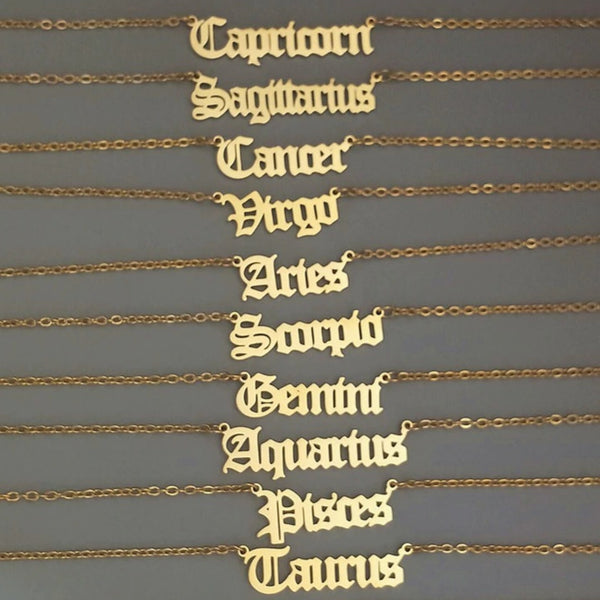 Capricorn
Sagittarius
Cancer
Virgo
Aries
Scorpio
Gemini
Aquarius
Pisces
Taurus